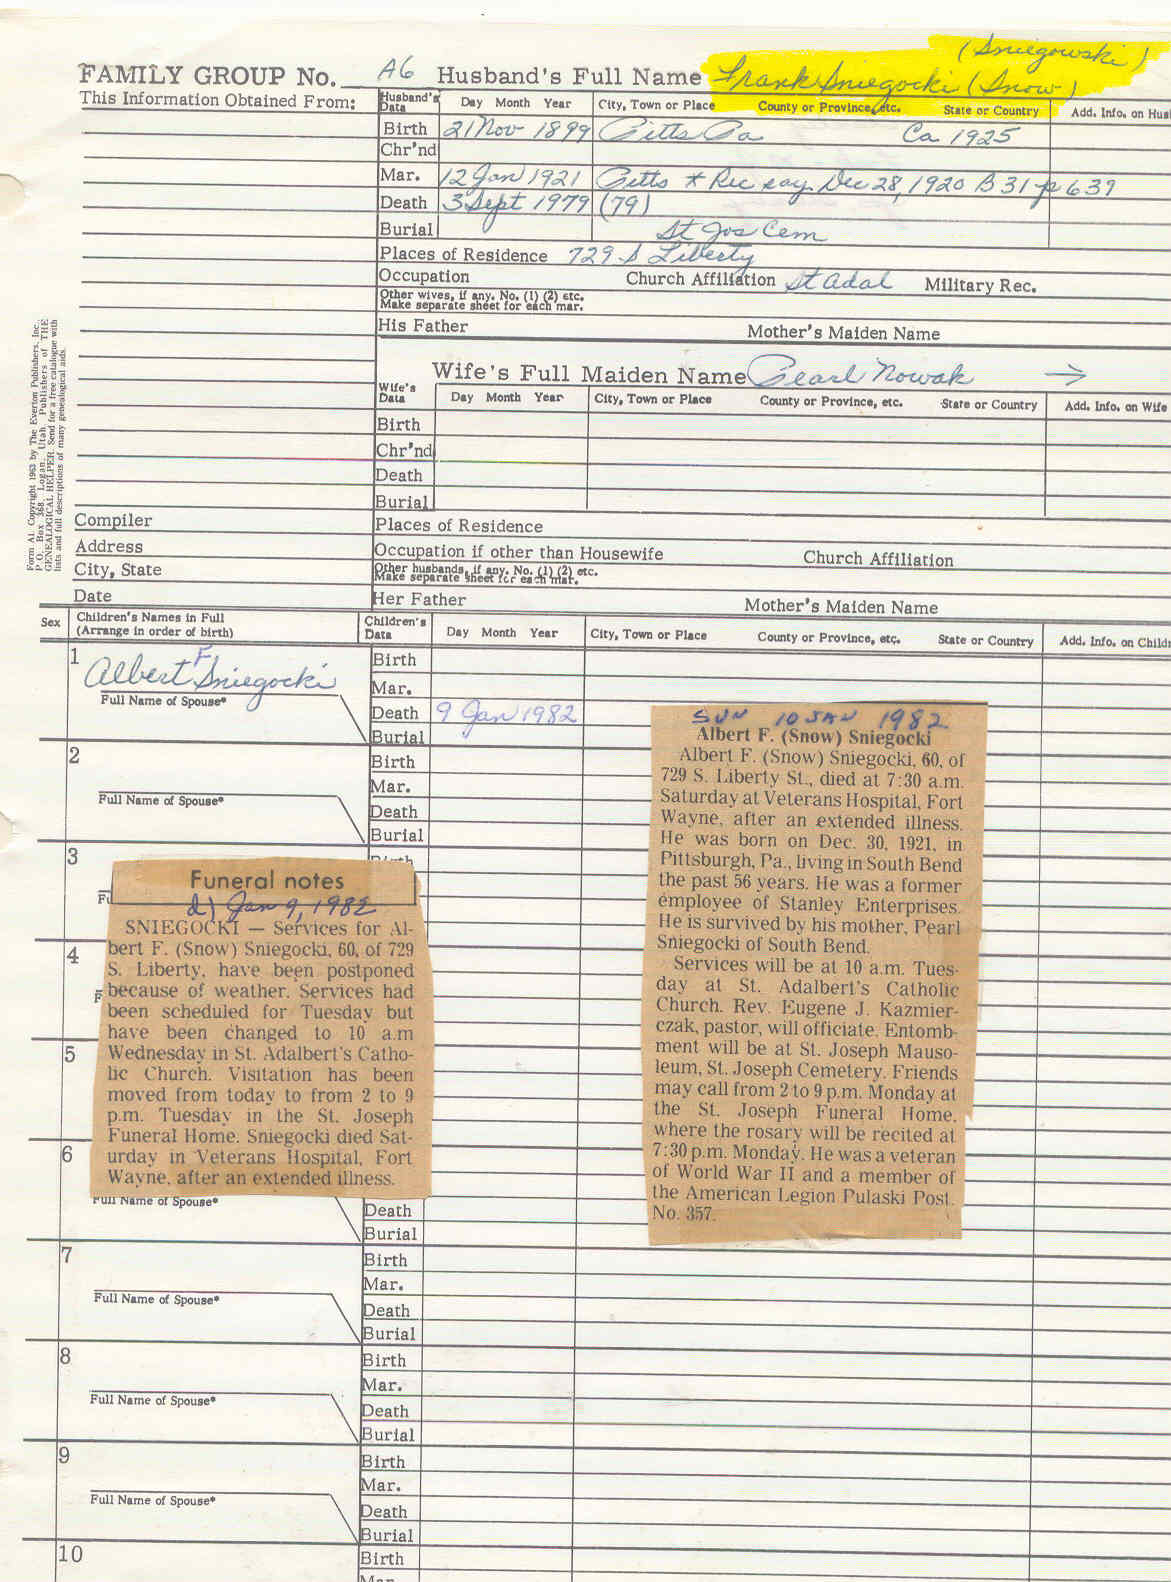 (Sniegowski)
FAMILY GROUP No. A6 Husband's Full Name Frank Sniegocki (Snow)
This Information Obtained From:
Husband's Data Day Month Year City, Town or Place County or Province, etc. State or Country Add. Info. on Hus
Birth 21 Nov 1899 Pitts Pa Ca 1925
Chr'nd
Mar. 12 Jan 1921 Pitts * Rec say Dec 28, 1920 B 31 p 639
Death 3 Sept 1979 (79)
Burial St Jos Cem
Places of Residence 729 S Liberty
Occupation Church Affiliation St Adal Military Rec.
Other wives, if any. No. (1) (2) etc.
Make separate sheet for each mar.
His Father Mother's Maiden Name
Wife's Full Maiden Name Pearl Nowak →
Wife's Data Day Month Year City, Town or Place County or Province, etc. State or Country Add. Info. on Wife
Birth
Chr'nd
Death
Burial
Form A1. Copyright 1963 by The Everton Publishers, Inc.,
P.O. Box 368, Logan, Utah. Publishers of THE
GENEALOGICAL HELPER. Send for a free catalogue with
lists and full descriptions of many genealogical aids.
Compiler Places of Residence
Address Occupation if other than Housewife Church Affiliation
City, State Other husbands, if any. No. (1) (2) etc.
Make separate sheet for each mar.
Date Her Father Mother's Maiden Name
Sex Children's Names in Full
(Arrange in order of birth)
Children's Data Day Month Year City, Town or Place County or Province, etc. State or Country Add. Info. on Childr
1 Albert F. Sniegocki
Full Name of Spouse*
Birth
Mar.
Death 9 Jan 1982
Burial
2
Full Name of Spouse*
Birth
Mar.
Death
Burial
SUN 10 JAN 1982
Albert F. (Snow) Sniegocki
Albert F. (Snow) Sniegocki, 60, of
729 S. Liberty St., died at 7:30 a.m.
Saturday at Veterans Hospital, Fort
Wayne, after an extended illness.
He was born on Dec. 30, 1921, in
Pittsburgh, Pa., living in South Bend
the past 56 years. He was a former
employee of Stanley Enterprises.
He is survived by his mother, Pearl
Sniegocki of South Bend.
Services will be at 10 a.m. Tues-
day at St. Adalbert's Catholic
Church. Rev. Eugene J. Kazmier-
czak, pastor, will officiate. Entomb-
ment will be at St. Joseph Mauso-
leum, St. Joseph Cemetery. Friends
may call from 2 to 9 p.m. Monday at
the St. Joseph Funeral Home,
where the rosary will be recited at
7:30 p.m. Monday. He was a veteran
of World War II and a member of
the American Legion Pulaski Post
No. 357.
3
Birth
Fu
Funeral notes
d) Jan 9, 1982
SNIEGOCKI — Services for Al-
bert F. (Snow) Sniegocki, 60, of 729
S. Liberty, have been postponed
because of weather. Services had
been scheduled for Tuesday but
have been changed to 10 a.m
Wednesday in St. Adalbert's Catho-
lic Church. Visitation has been
moved from today to from 2 to 9
p.m. Tuesday in the St. Joseph
Funeral Home. Sniegocki died Sat-
urday in Veterans Hospital, Fort
Wayne, after an extended illness.
4
F
5
6
Full Name of Spouse*
Death
Burial
7
Full Name of Spouse*
Birth
Mar.
Death
Burial
8
Full Name of Spouse*
Birth
Mar.
Death
Burial
9
Full Name of Spouse*
Birth
Mar.
Death
Burial
10
Birth
Mar.